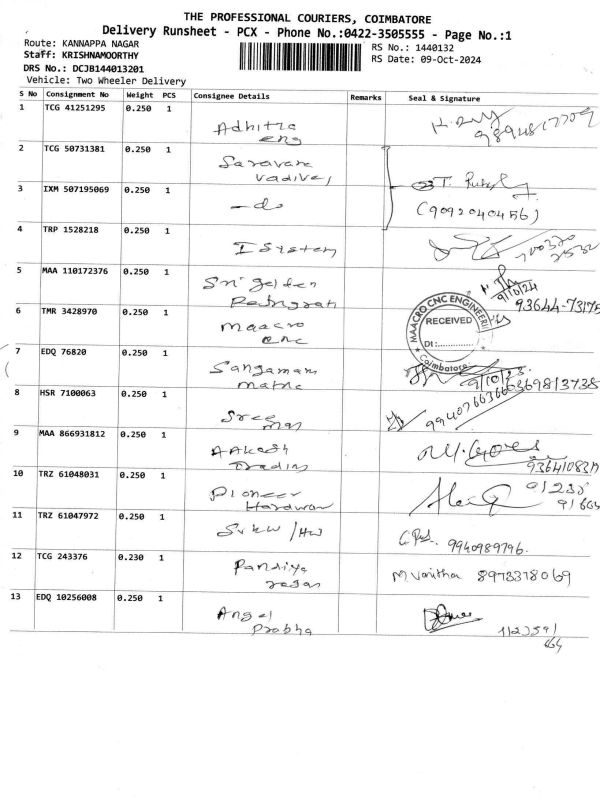 THE PROFESSIONAL COURIERS, COIMBATORE
Delivery Runsheet - PCX - Phone No.:0422-3505555 - Page No.:1
Route: KANNAPPA NAGAR
RS No.: 1440132
Staff: KRISHNAMOORTHY
RS Date: 09-Oct-2024
DRS No.: DCJB144013201
Vehicle: Two Wheeler Delivery
S No Consignment No Weight PCS Consignee Details Remarks Seal & Signature
1 TCG 41251295 0.250 1
Adhitza
eng
2 TCG 50731381 0.250 1
Saravana
Vadivel
3 IXM 507195069 0.250 1
- do
(9092040456)
4 TRP 1528218 0.250 1
I System
5 MAA 110172376 0.250 1
Sri golden
9/10/24
93644-73175
6 TMR 3428970 0.250 1
Maacro
cnc
MAACRO CNC ENGINEERI
RECEIVED
Dt:
Coimbatore
7 EDQ 76820 0.250 1
Sangamam
Matric
8 HSR 7100063 0.250 1
Sree
9 MAA 866931812 0.250 1
Aakash
Trading
10 TRZ 61048031 0.250 1
Pioneer
Hardwar
11 TRZ 61047972 0.250 1
Svkw /Hw
9940989796
12 TCG 243376 0.230 1
Pandiya
rajan
M. Vanitha 8973378069
13 EDQ 10256008 0.250 1
Angel
Prabha